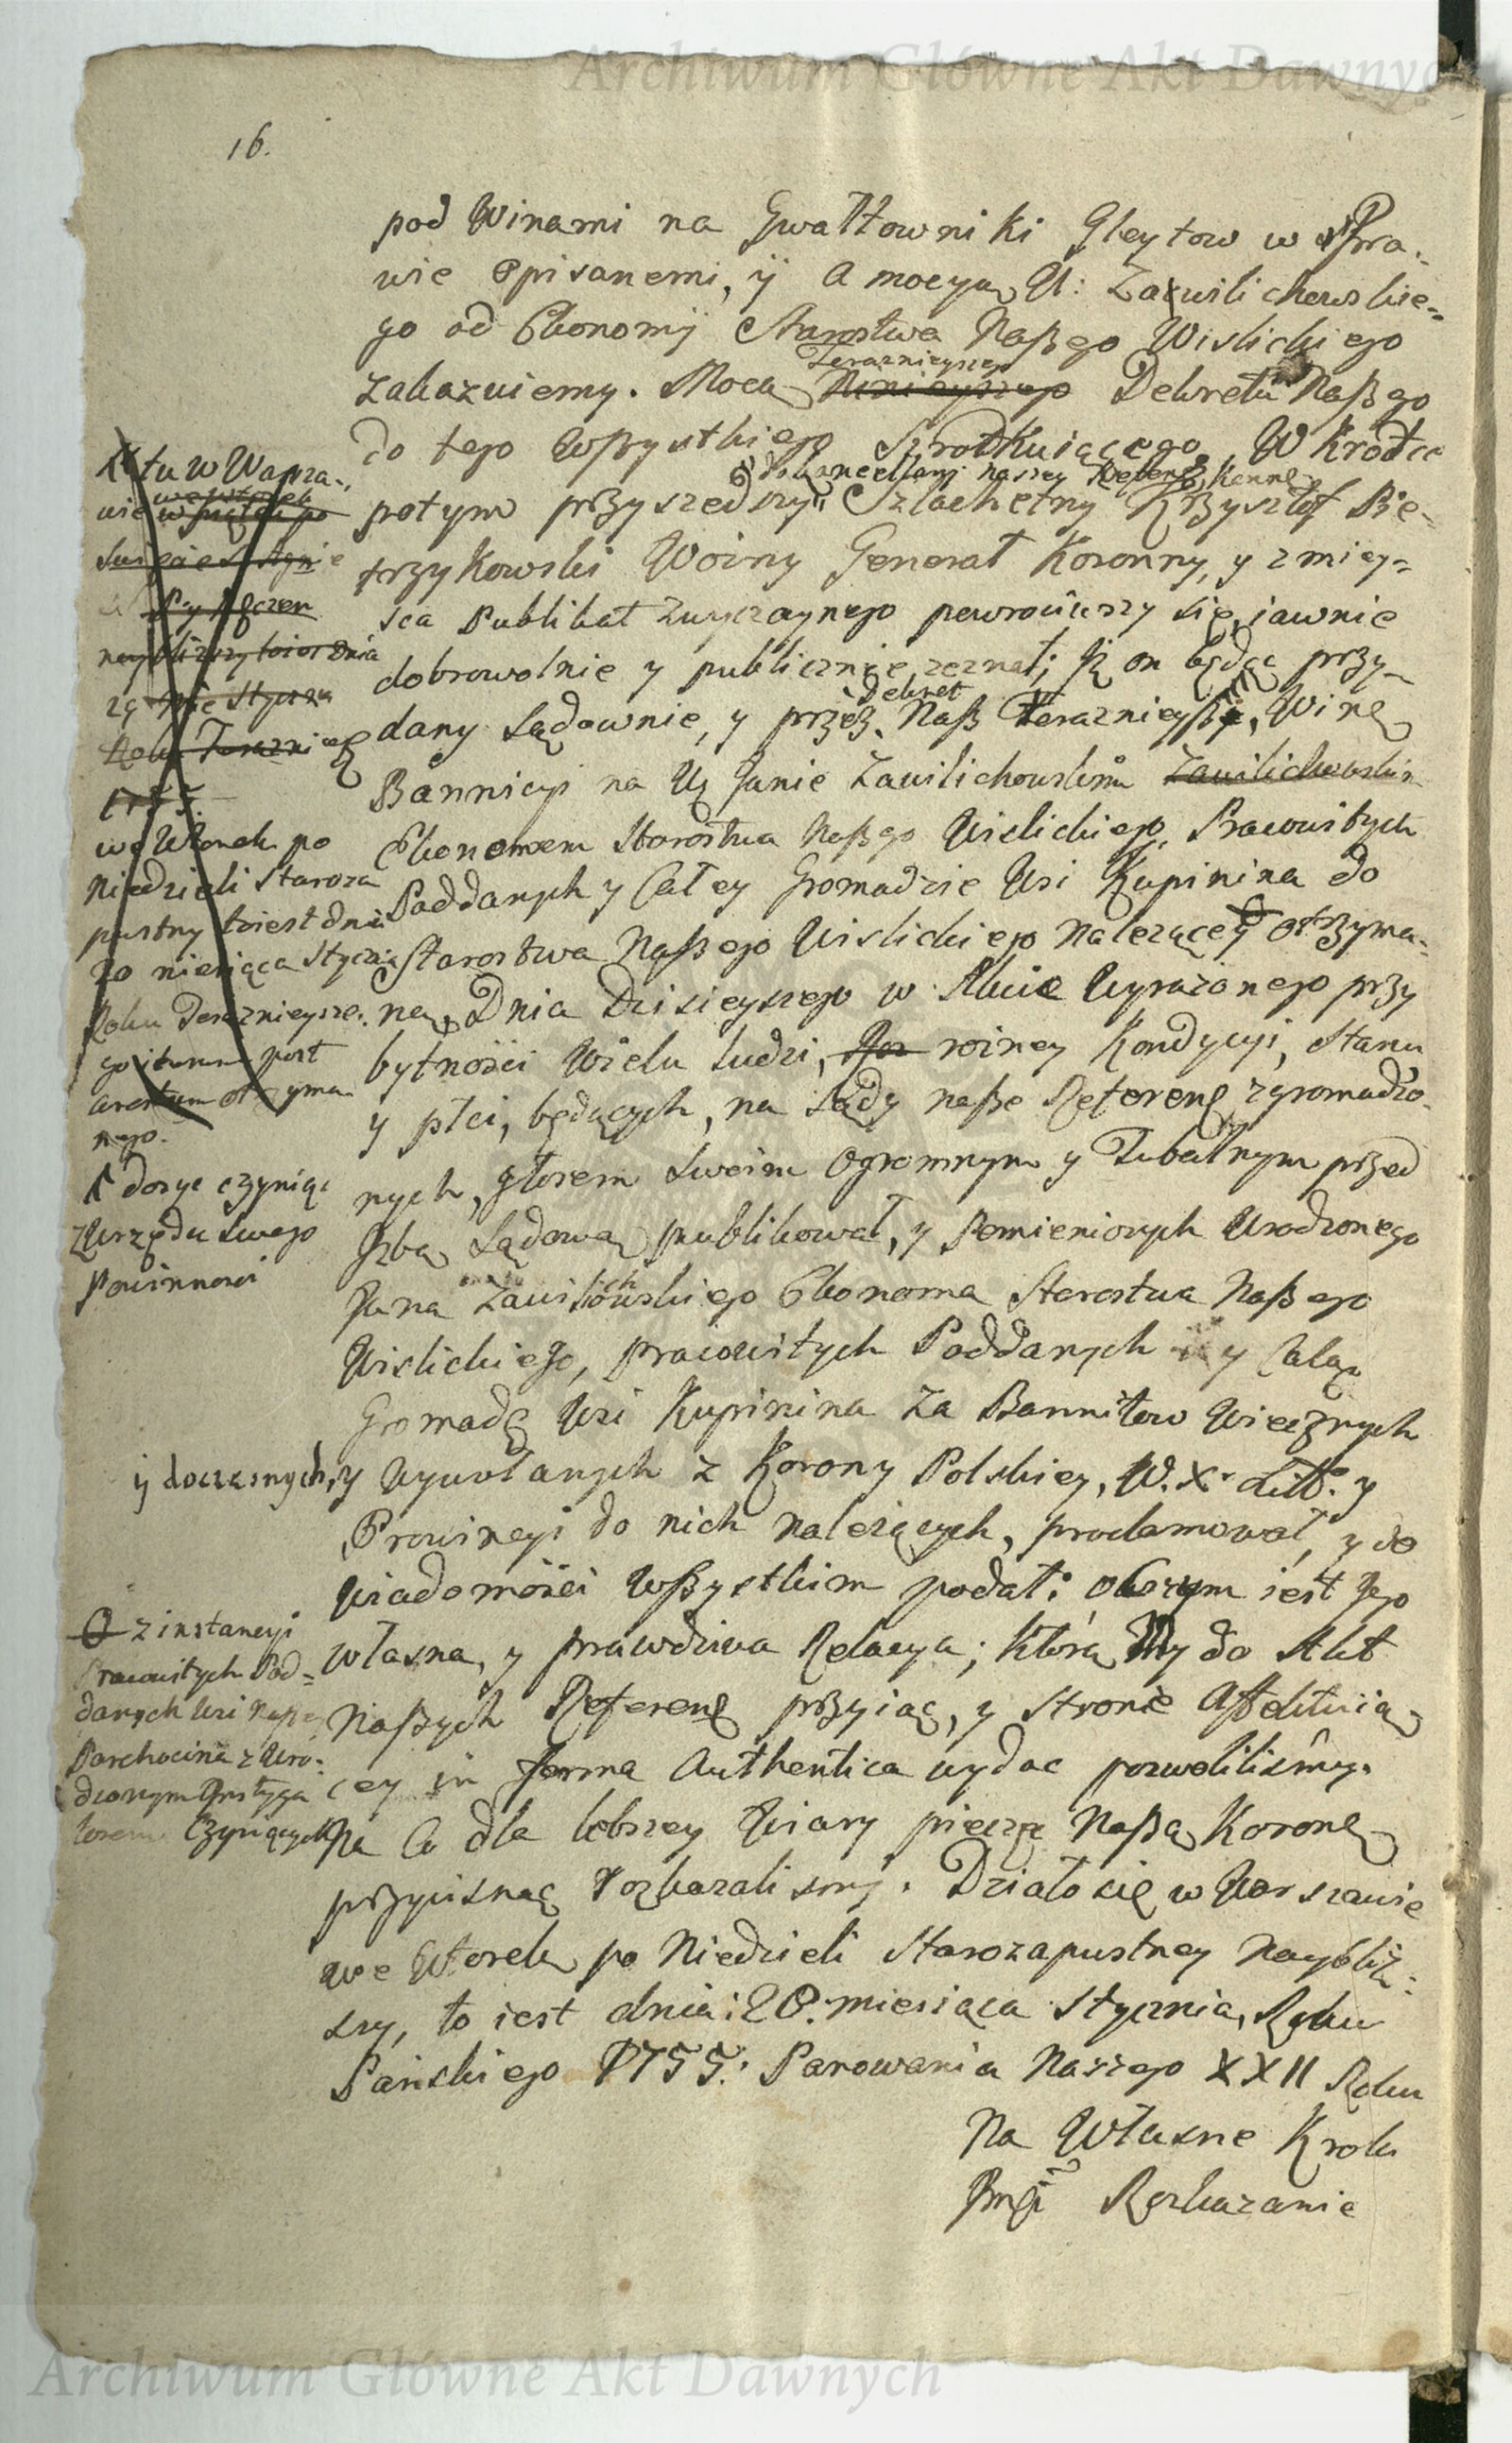 Archiwum Główne Akt Dawnych
16.
pod Winami na Gwałtowniki Gleytow w Pra-
wie Opisanemi, ÿ a mocyą U: Zawilichowskie-
go od Ekonomÿ Starostwa Naßego Wislickiego
Terazniejszego
zakazuiemy. Mocą Ninieyszego Dekretu Naßego
do tego wßystkiego Szrodkuiącego. W krotce
do kancellaryi naszey
potym przyszedszy Szlachetny Krzysztof Bie-
trzykowski Wozny Generał Koronny, y z miey-
sca Publikat zwyczaynego powrociwszy się, jawnie
dobrowolnie y publicznie zeznał; Iż on będąc przy-
Dekret
dany Sądownie, y przez Naß Terazniejßy, Winę
Bannicyi na Ur Janie Zawilichowskim Zawilichowskim
Ekonomem Starostwa Naßego Wislickiego, Pracowitych
Poddanych y Całey Gromadzie Wsi Kupinina do
Starostwa Naßego Wislickiego Nalezącey otrzyma-
ną, Dnia Dzisieyszego w Akcie Wyrazonego przy
bytności Wielu ludzi, rożney Kondycyi, Stanu
y płci, będących, na Sądy naße Referenę zgromadzo-
nych, głosem Swoim Ogromnym y Tubalnym przed
Izbą Sądową publikował, y pomienionych Urodzonego
Jana Zawilichowskiego Ekonoma Starostwa Naßego
Wislickiego, Pracowitych Poddanych y Całą
Gromadę Wsi Kupinina za Bannitow Wiecznych
y Wywołanych z Korony Polskiey, W. X. Litt. y
Prowincyi do nich nalezących, proclamował, y do
wiadomości wßystkim podał: o czym iest Jego
własna, y prawdziwa Relacya; którą My do Akt
Naßych Referenę przyiąć, y stronie Affektuią-
cey in forma Authentica wydac pozwolilismy.
Na Co dla lebszey Wiary pieczę Naßą Koronę
przycisnąć rozkazalismy. Działo się w Warszawie
we Wtorek po Niedzieli Starozapustney Naybliż-
szy, to iest dnia: 28. miesiąca Stycznia, Roku
Pańskiego 1755. Panowania Naszego XXII Roku
Na Własne Krola
Jmći Rozkazanie
tu w Warsza-
wie w piątek po
nayblizszy to iest dnia
Stycznia
Roku Teraznieyß
1755.
we Wtorek po
Niedzieli Staroza
pustny to iest dnia
miesiąca Stycznia
Roku Teraznieysze-
go iterum post
arestum otrzyma-
nego.
dosyc czyniąc
z Urzędu Swego
Powinnosci
ÿ doczesnych,
z instancyi
Pracowitych Pod-
danych Wsi Naßey
Parchocina z Uro-
dzonym Instyga
torem Czyniących
Archiwum Główne Akt Dawnych